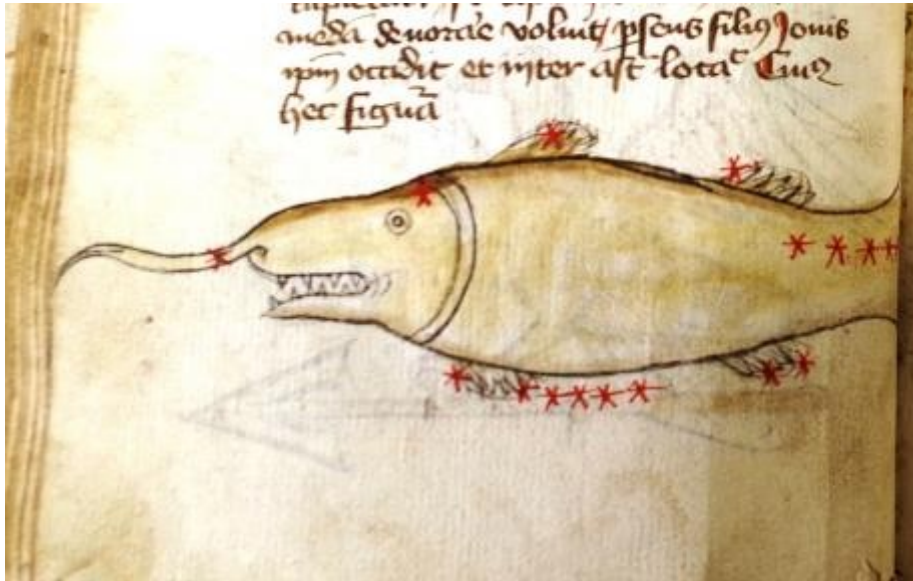 medā deuorare voluit, pseus filiꝰ Jouis
ipm occidit et inter ast locac̄ Cuiꝰ
hec figurā